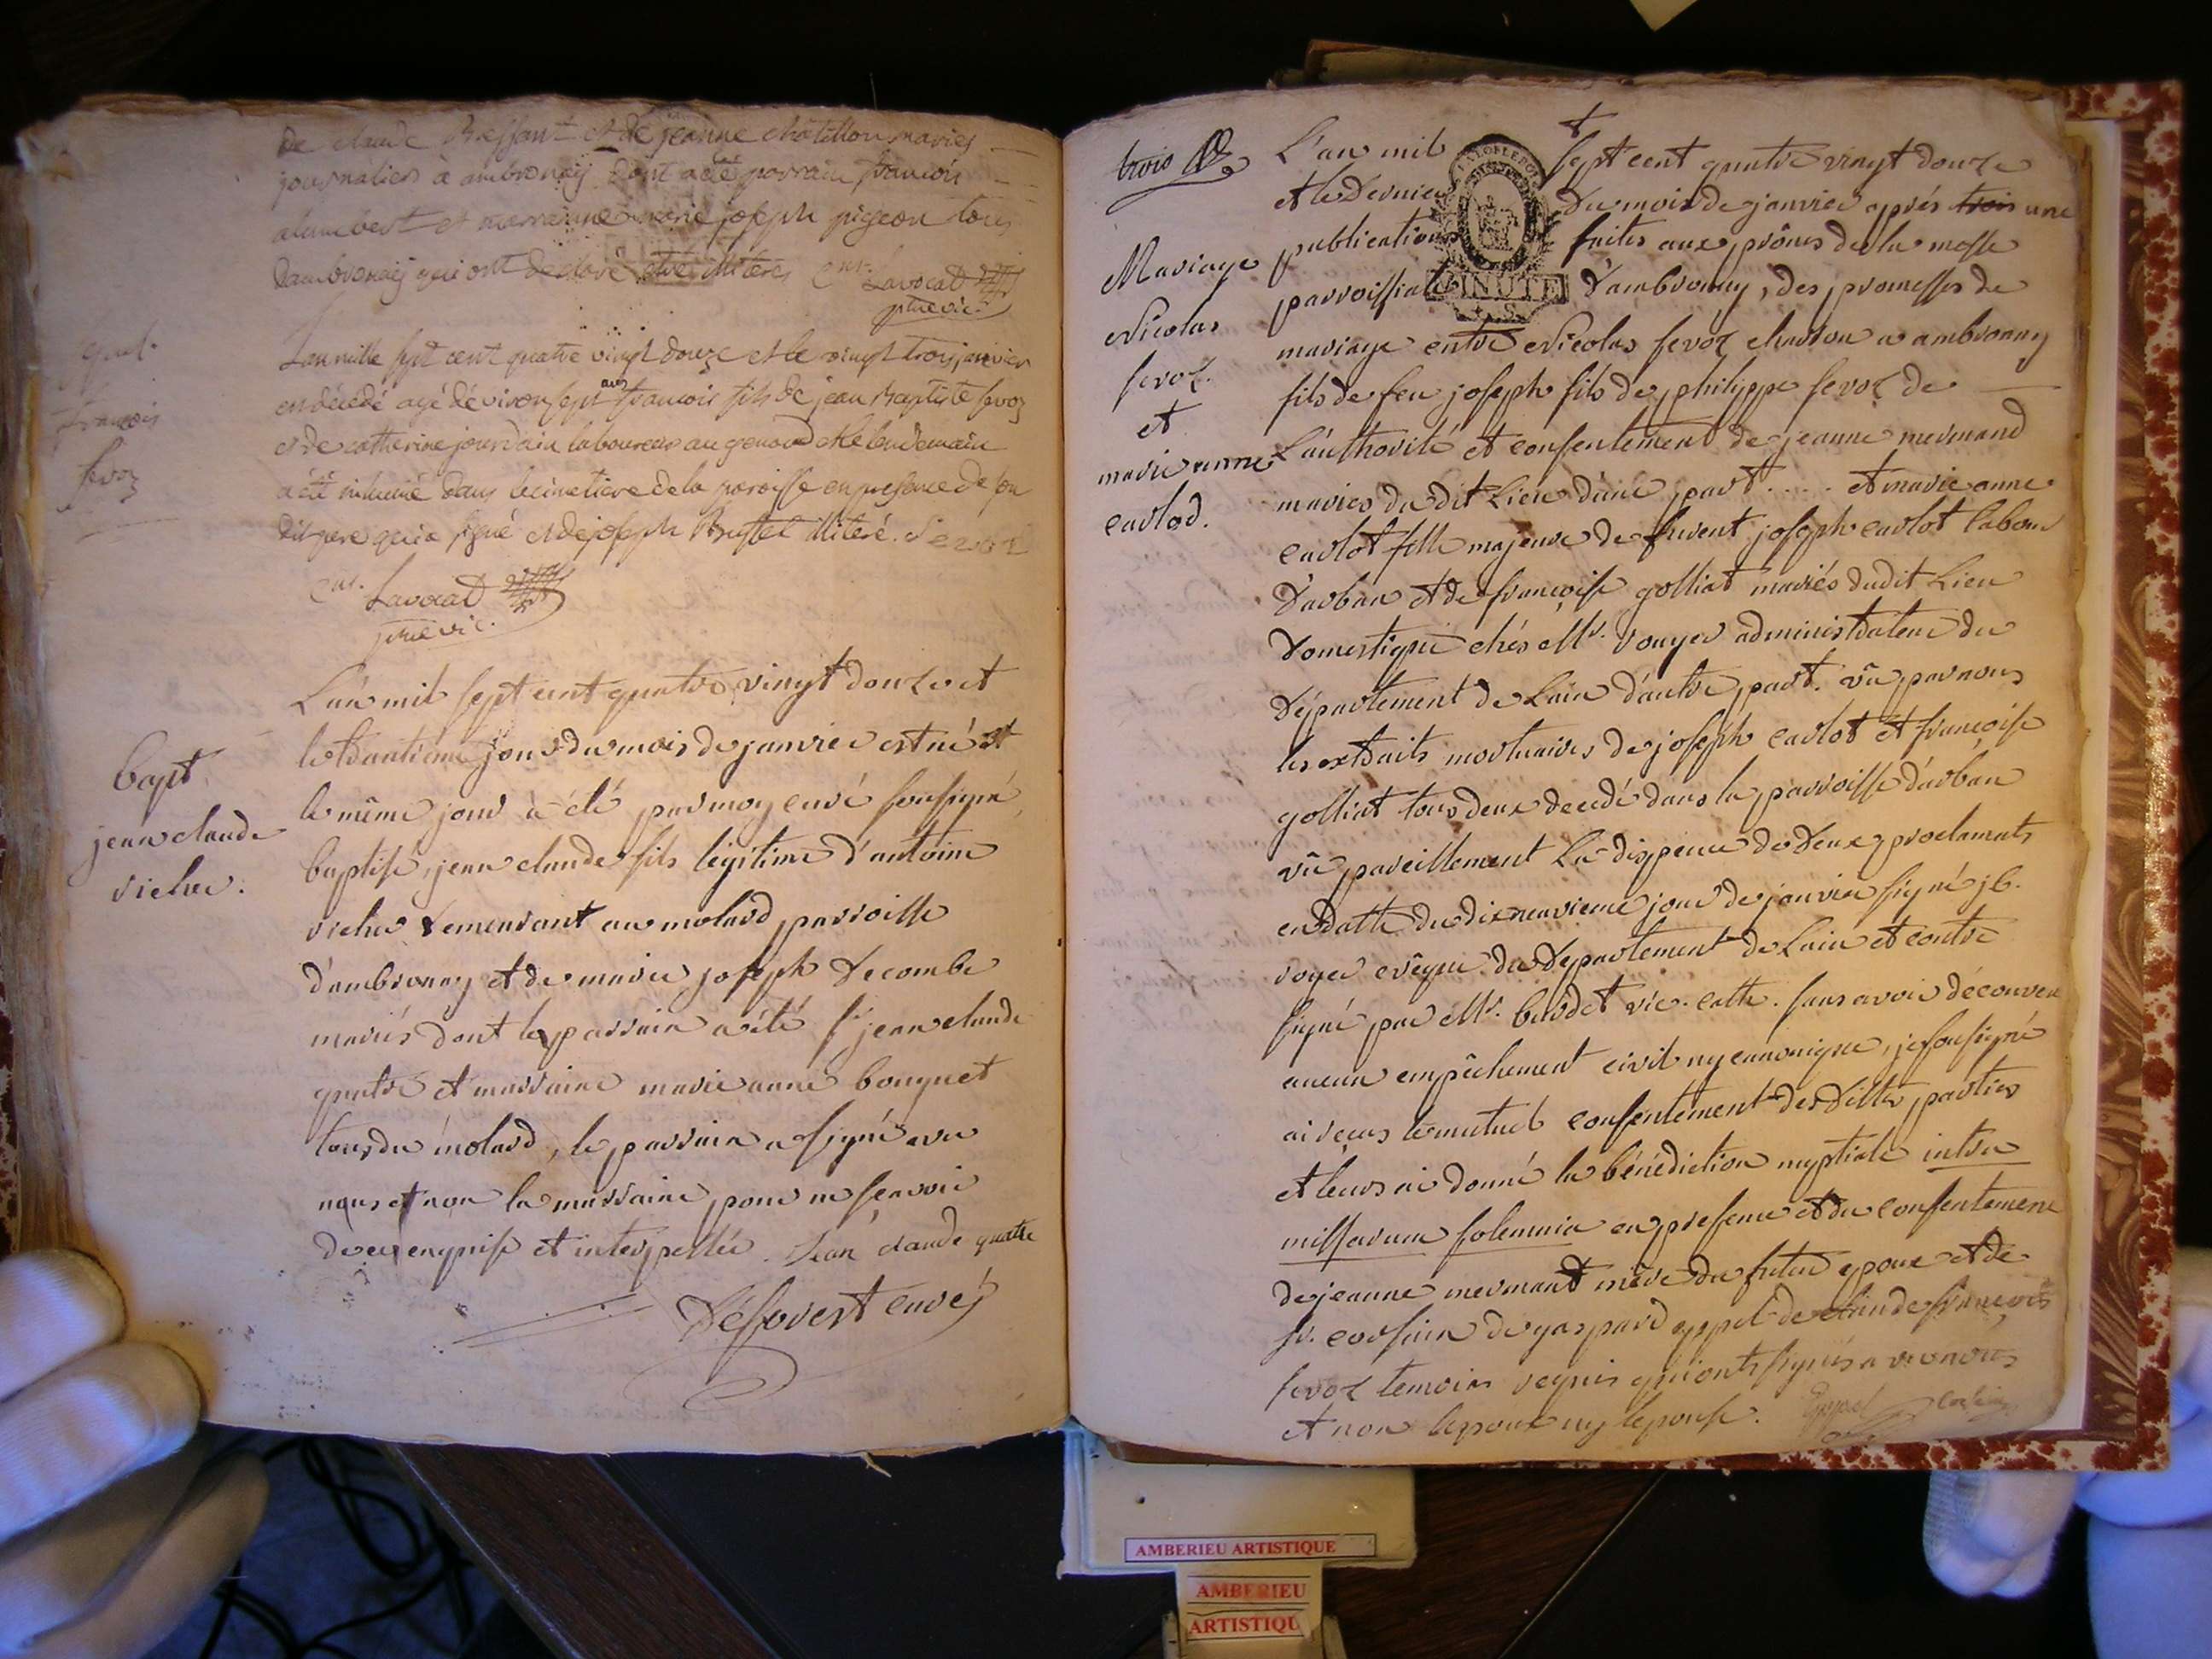 de claude Bressant et de jeanne châtillon mariés
journaliers à ambronay dont a été parrain, francois
alambert et marrainne marie joseph pigeon tous
dambronaÿ qui ont declaré etre illiteres Lavocat
ptre vic.
L'an mille sept cent quatre vingt douze et le vingt trois janvier
est décédé agé dé viron sept ans francois fils de jean Baptiste fevoz
et de catherine jourdain laboureur au genoud et le lendemain
a été inhumé dans le cimetiere de la paroisse en presence de son
dit pere qui a signé et de joseph Brussel illiteré.
Lavocat
ptre vic.
francois
fevoz
Bapt
jean claude
vicher.
L'an mil sept cent quatre vingt douze et
le trantième jour du mois de janvier est né et
le même jour à été par moy curé soussigné,
baptisé, jean claude fils légitime d'antoine
vicher demeurant au molard parroisse
d'ambronay et de marie joseph Decombe
mariés dont le parrain a été sr jean claude
quatre et marraine marie anne bouquet
tous du molard, le parrain a signé avec
nous et non la marraine pour ne sçavoir
de ce enquise et interpellée. Jean claude quatre
Déforest curé
trois
Mariage
Nicolas
fevoz.
et
marie anne
carlod.
L'an mil sept cent quatre vingt douze
et le dernier du mois de janvier après trois une
publication faites aux prônes de la messe
parroissiale MINUTE d'ambronay, des promesses de
mariage entre Nicolas fevoz charron a ambronay
fils de feu joseph fils de philippe fevoz de
L'authorité et consentement de jeanne mermand
mariés du dit Lieu d'une part .... et marie anne
carlot fille majeure de furent joseph carlot labour
d'arban et de françoise golliat mariés dudit Lieu
Domestique chés Mr. vouyer administrateur du
Département de Lain d'autre part. vû par nous
les extraits mortuaires de joseph carlot et françoise
golliat tous deux decedé dans la parroisse d'arban
vû pareillement La dispence de deux proclamats
en datte du dixneuvieme jour de janvier signé jb.
royer evêque du Département de Lain et contre
signé par Mr. burdet vic. cath. sans avoir découvert
aucun empêchement civil ny canonique, je soussigné
ai reçus le mutuel consentement des dittes parties
et leurs ai donné la bénédiction nuptiale intra
missarum solemnia en presence et du consentement
de jeanne mermant mère du futur epoux et de
sr. corsain de gaspard eypel de claude françois
fevoz temoins requis qui ont signés avec nous
et non lepoux ny lepouse.
AMBERIEU ARTISTIQUE
AMBERIEU
ARTISTIQU